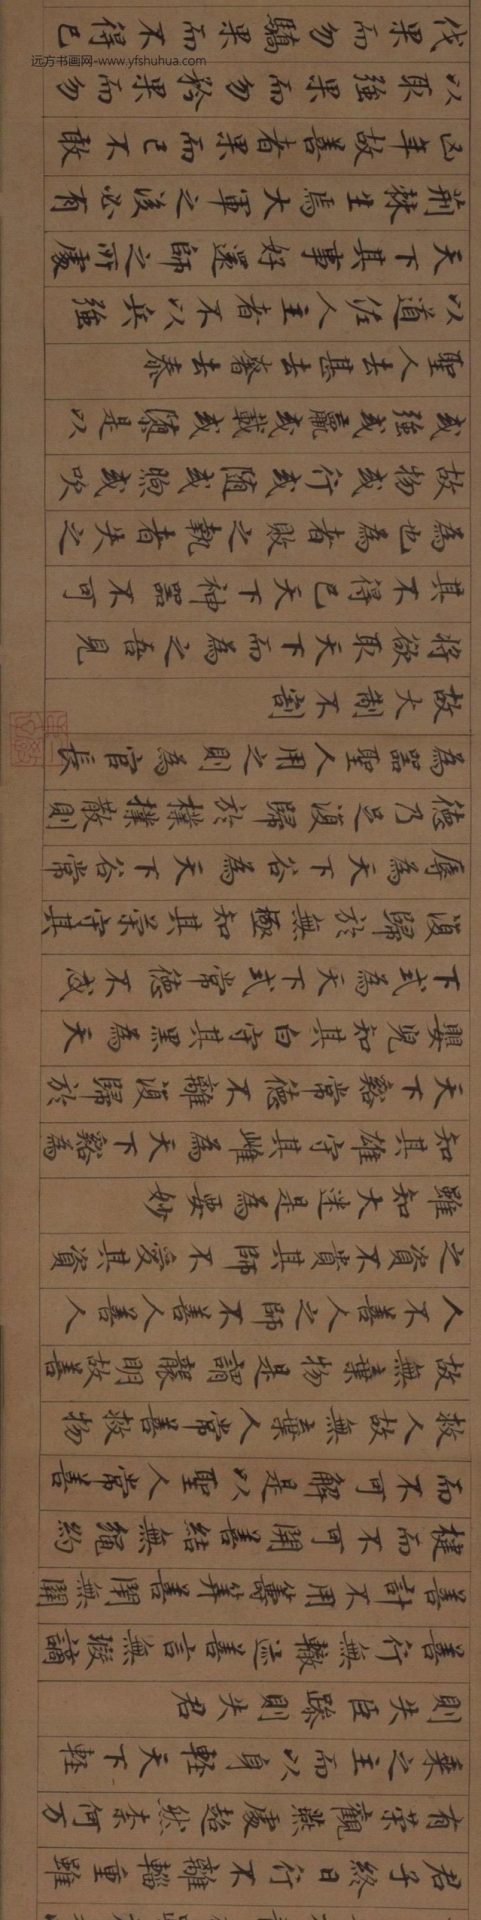 君子終日行不離輜重雖
有榮觀燕處超然柰何万
乗之主而以身輕天下輕
則失臣躁則失君
善行無轍迹善言無瑕讁
善計不用籌筭善閇無關
楗而不可開善結無繩約
而不可解是以聖人常善
救人故無棄人常善救物
故無棄物是謂襲明故善
人不善人之師不善人善人
之資不貴其師不愛其資
雖知大迷是為要妙
知其雄守其雌為天下谿為
天下谿常德不離復歸於
嬰兒知其白守其黑為天
下式為天下式常德不忒
復歸於無極知其榮守其
辱為天下谷為天下谷常
德乃足復歸於樸樸散則
為器聖人用之則為官長
故大制不割
將欲取天下而為之吾見
其不得已天下神器不可
為也為者敗之執者失之
故物或行或随或呴或吹
或強或羸或載或隳是以
聖人去甚去奢去泰
以道佐人主者不以兵強
天下其事好還師之所處
荊棘生焉大軍之後必有
凶年故善者果而已不敢
以取強果而勿矜果而勿
伐果而勿驕果而不得已
远方书画网-www.yfshuhua.com